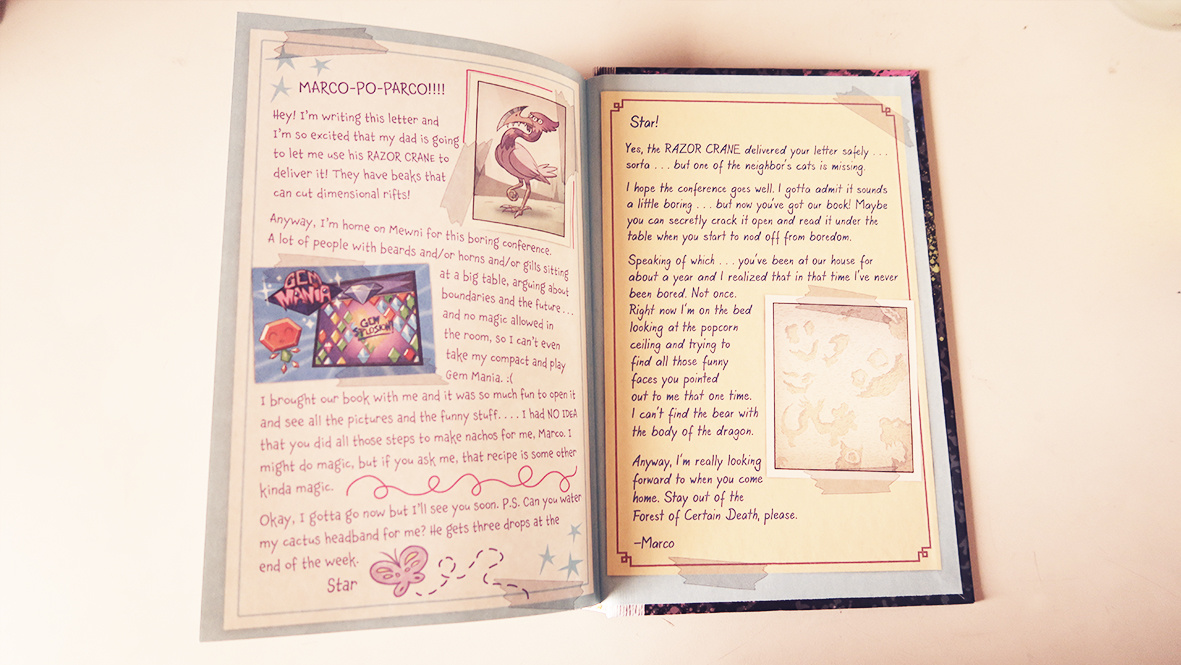 MARCO-PO-PARCO!!!!
Hey! I'm writing this letter and
I'm so excited that my dad is going
to let me use his RAZOR CRANE to
deliver it! They have beaks that
can cut dimensional rifts!
Anyway, I'm home on Mewni for this boring conference.
A lot of people with beards and/or horns and/or gills sitting
at a big table, arguing about
boundaries and the future . . .
and no magic allowed in
the room, so I can't even
take my compact and play
Gem Mania. :(
GEM
MANIA
GEM
SPLOSION!
I brought our book with me and it was so much fun to open it
and see all the pictures and the funny stuff. . . . I had NO IDEA
that you did all those steps to make nachos for me, Marco. I
might do magic, but if you ask me, that recipe is some other
kinda magic.
Okay, I gotta go now but I'll see you soon. P.S. Can you water
my cactus headband for me? He gets three drops at the
end of the week.
Star
Star!
Yes, the RAZOR CRANE delivered your letter safely . . .
sorta . . . but one of the neighbor's cats is missing.
I hope the conference goes well. I gotta admit it sounds
a little boring . . . but now you've got our book! Maybe
you can secretly crack it open and read it under the
table when you start to nod off from boredom.
Speaking of which . . . you've been at our house for
about a year and I realized that in that time I've never
been bored. Not once.
Right now I'm on the bed
looking at the popcorn
ceiling and trying to
find all those funny
faces you pointed
out to me that one time.
I can't find the bear with
the body of the dragon.
Anyway, I'm really looking
forward to when you come
home. Stay out of the
Forest of Certain Death, please.
–Marco